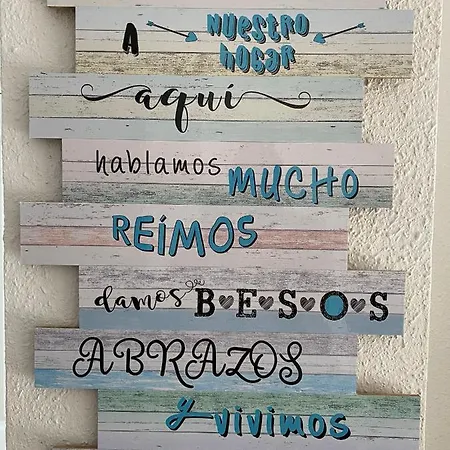 A NUESTRO
hogar
aquí
hablamos MUCHO
REÍMOS
damos B•E•S•O•S
ABRAZOS
y vivimos